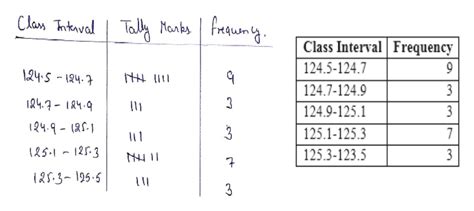 Class Interval Tally Marks Frequency.
124.5 - 124.7 9
124.7 - 124.9 3
124.9 - 125.1 3
125.1 - 125.3 7
125.3 - 195.5 3
Class Interval Frequency
124.5-124.7 9
124.7-124.9 3
124.9-125.1 3
125.1-125.3 7
125.3-123.5 3